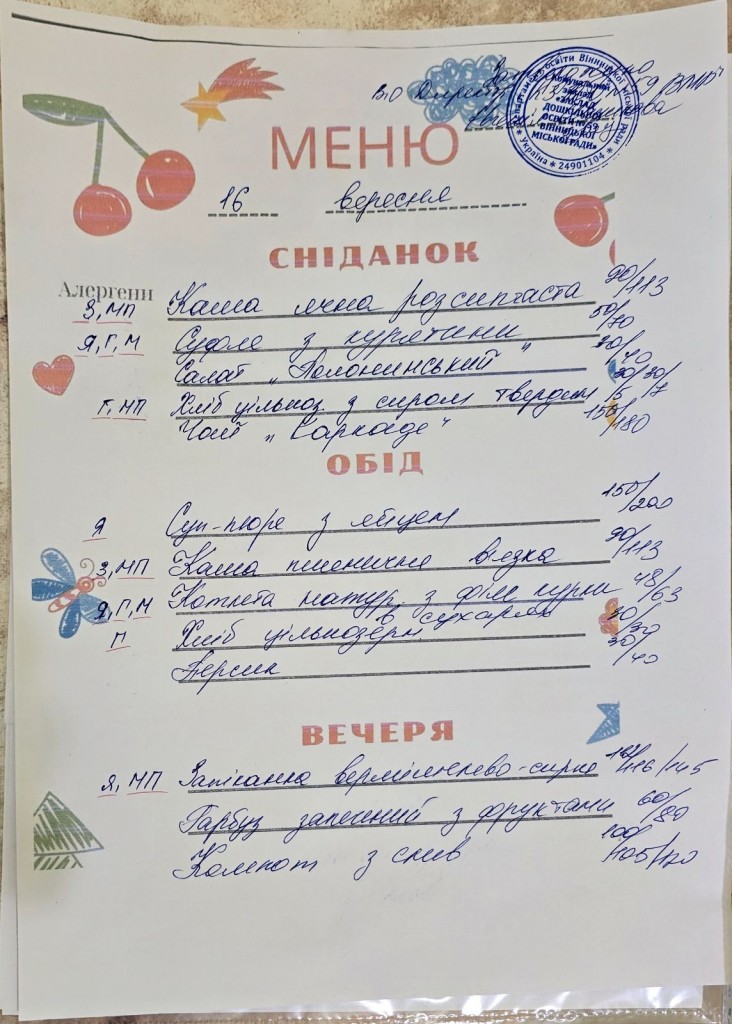 Затверджую
ВІО Директор КЗ "ЗДО №59 ВМР"
Департамент освіти Вінницької міської ради
Комунальний
заклад
«ЗАКЛАД
ДОШКІЛЬНОЇ
ОСВІТИ №59
ВІННИЦЬКОЇ
МІСЬКОЇ РАДИ»
* Україна * 24901104 *
МЕНЮ
16 вересня
СНІДАНОК
Алергени
З, МП Каша ячна розсипчаста 90/113
Я, Г, М Суфле з курятини 50/70
Салат „Полонинський" 30/40
Г, МП Хліб цільноз. з сиром твердим 30/30/5/7
Чай „Каркаде" 150/180
ОБІД
Я Суп-пюре з яйцем 150/200
З, МП Каша пшенична в'язка 90/113
Я, Г, М Котлета натур. з філе курки 48/63
в сухарях
П Хліб цільнозерн 30/30
Персик 30/40
ВЕЧЕРЯ
Я, МП Запіканка вермішелево-сирна 116/145
Гарбуз запечений з фруктами 60/80
Компот з слив 100/105/120